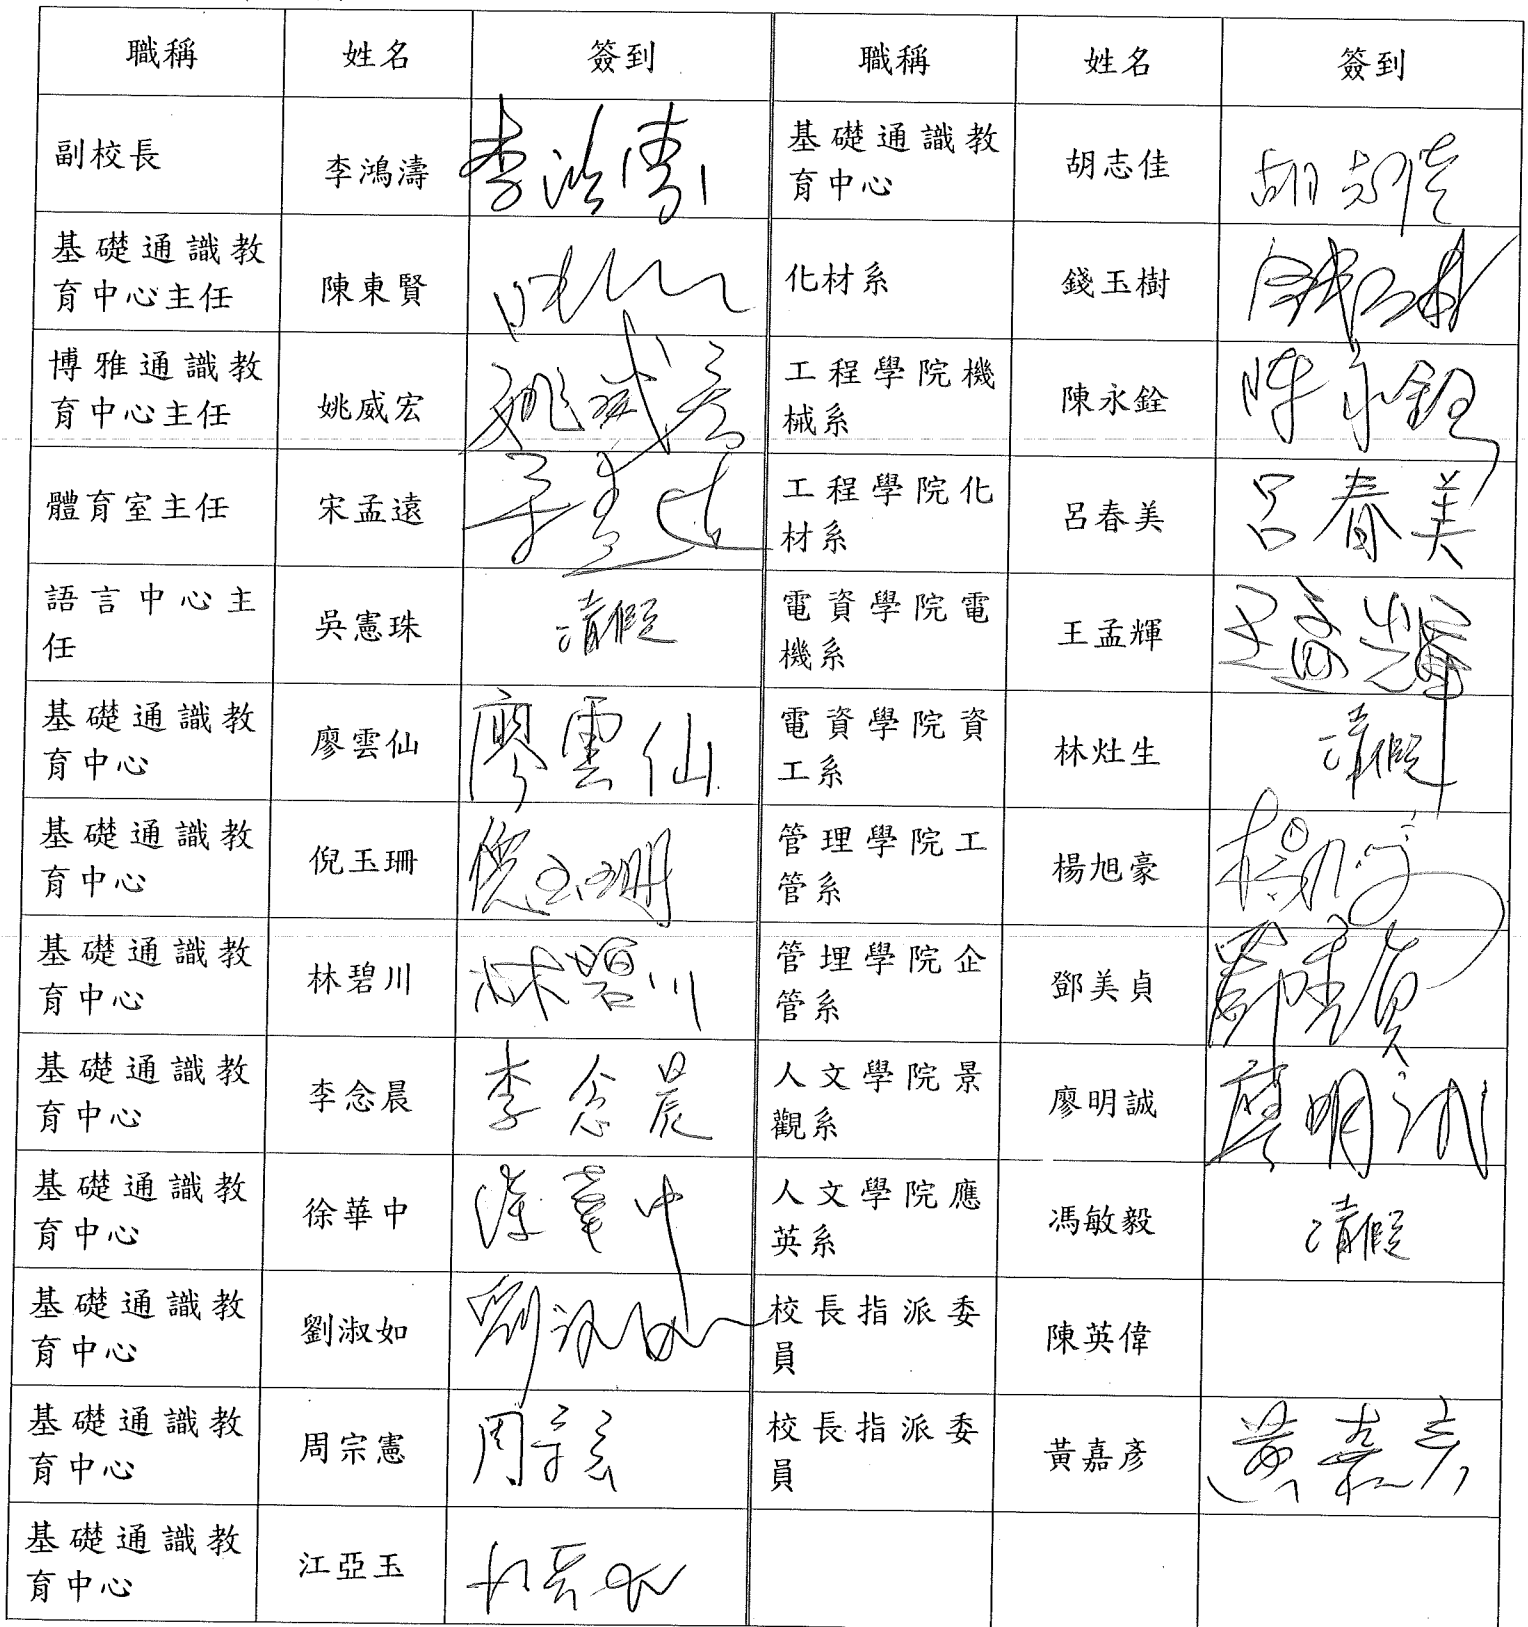 職稱 姓名 簽到 職稱 姓名 簽到
副校長 李鴻濤 李鴻濤 基礎通識教
育中心 胡志佳 胡志佳
基礎通識教
育中心主任 陳東賢 化材系 錢玉樹 錢玉樹
博雅通識教
育中心主任 姚威宏 姚威宏 工程學院機
械系 陳永銓 陳永銓
體育室主任 宋孟遠 宋孟遠 工程學院化
材系 呂春美 呂春美
語言中心主
任 吳憲珠 請假 電資學院電
機系 王孟輝 王孟輝
基礎通識教
育中心 廖雲仙 廖雲仙 電資學院資
工系 林灶生 請假
基礎通識教
育中心 倪玉珊 倪玉珊 管理學院工
管系 楊旭豪 楊旭豪
基礎通識教
育中心 林碧川 林碧川 管理學院企
管系 鄧美貞 鄧美貞
基礎通識教
育中心 李念晨 李念晨 人文學院景
觀系 廖明誠 廖明誠
基礎通識教
育中心 徐華中 徐華中 人文學院應
英系 馮敏毅 請假
基礎通識教
育中心 劉淑如 劉淑如 校長指派委
員 陳英偉
基礎通識教
育中心 周宗憲 周宗憲 校長指派委
員 黃嘉彥 黃嘉彥
基礎通識教
育中心 江亞玉 江亞玉